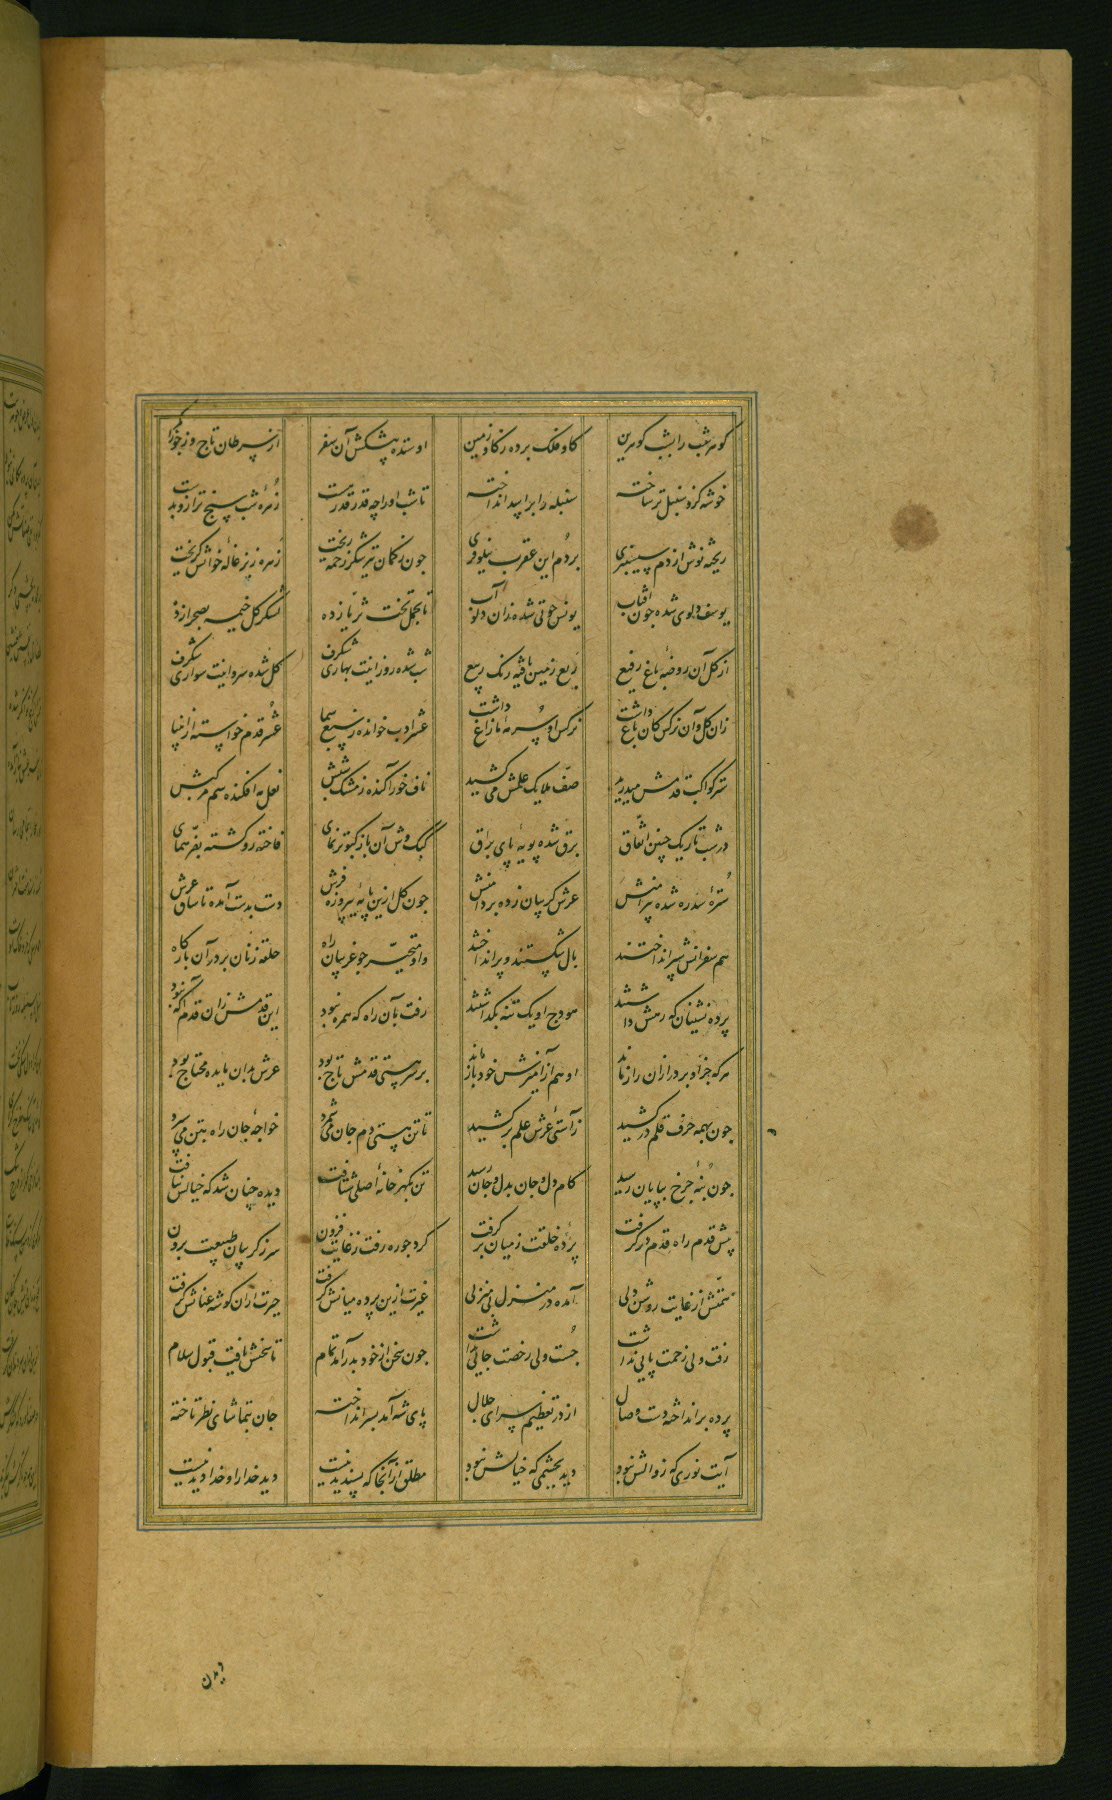 گوهر شب را بشب گوهرین گاو فلک برده ز گاو زمین او ستده پیشکش آن سفر از سرطان تاج و ز جوزا کمر
خوشه کزو سنبل تر ساخته سنبله را بر اسد انداخته تا شب او را چه قدر قدر هست زهره شب سنج ترازو بدست
ریخته نوش از دم سیسنبری بر دم این عقرب نیلوفری چون ز کمان تیر شکر زخمه ریخت زهر ز بزغاله خوانش گریخت
یوسف دلوی شده چون آفتاب یونس حوتی شده زان دلو آب تا بحمل تخت ثریا زده لشکر گل خیمه بصحرا زده
از گل آن روضه باغ رفیع ربع زمین یافته رنگ ربیع شب شده روز اینت بهاری شگرف گل شده سرو اینت سواری شگرف
زان گل و آن نرگس کان باغ داشت نرگس او سرمه مازاغ داشت عشر ادب خوانده ز سبع سما عذر قدم خواسته از انبیا
ستر کواکب قدمش میدرید صف ملایک علمش می کشید ناف خور آکنده ز مشک شبش نعل مه افکنده سم مرکبش
در شب تاریک چنین اتفاق برق شده پویه پای براق کبک وش آن باز کبوتر نمای فاخته رو گشته بفر همای
سدره شده سدره پیراهنش عرش گریبان زده بر دامنش چون گل ازین پایه پیروزه فرش دست بدست آمده تا ساق عرش
هم سفرانش سپر انداختند بال شکستند و پر انداختند او متحیر چو غریبان راه حلقه زنان بر در آن بارگاه
پرده نشینان که رهش داشتند هودج او یک تنه بگذاشتند رفت بآن راه که همره نبود این قدمش زان قدم آگه نبود
هر که جز او بر در از ان راز ماند او هم از آمیزش خود باز ماند بر سر هستی قدمش تاج بود عرش بدان مایده محتاج بود
چون بهمه حرف قلم در کشید ز آستی عرش علم بر کشید تا تن هستی دم جان می شمرد خواجه جان راه بتن می سپرد
چون بنه چرخ بپایان رسید کام دل و جان بدل و جان رسید تن بگهر خانه اصلی شتافت دیده چنان شد که خیالش نیافت
پیش قدم راه قدم در گرفت پرده خلقت ز میان بر گرفت کرد چو ره رفت ز غایت فزون سر ز گریبان طبیعت برون
همتش از غایت روشن دلی آمده در منزل بی منزلی غیرت ازین پرده میانش گرفت حیرت از ان گوشه عنانش گرفت
رفت ولی زحمت پایی نداشت جست ولی رخصت جایی نداشت چون سخن از خود بدر آمد تمام تا سخنش یافت قبول سلام
پرده بر انداخته دست وصال از در تعظیم سرای جلال پای شد آمد بسر انداخته جان بتماشای نظر تاخته
آیت نوری که زوالش نبود دید بچشمی که خیالش نبود مطلق از آنجا که پسندیدنیست دید خدا را و خدا دیدنیست
دیدن